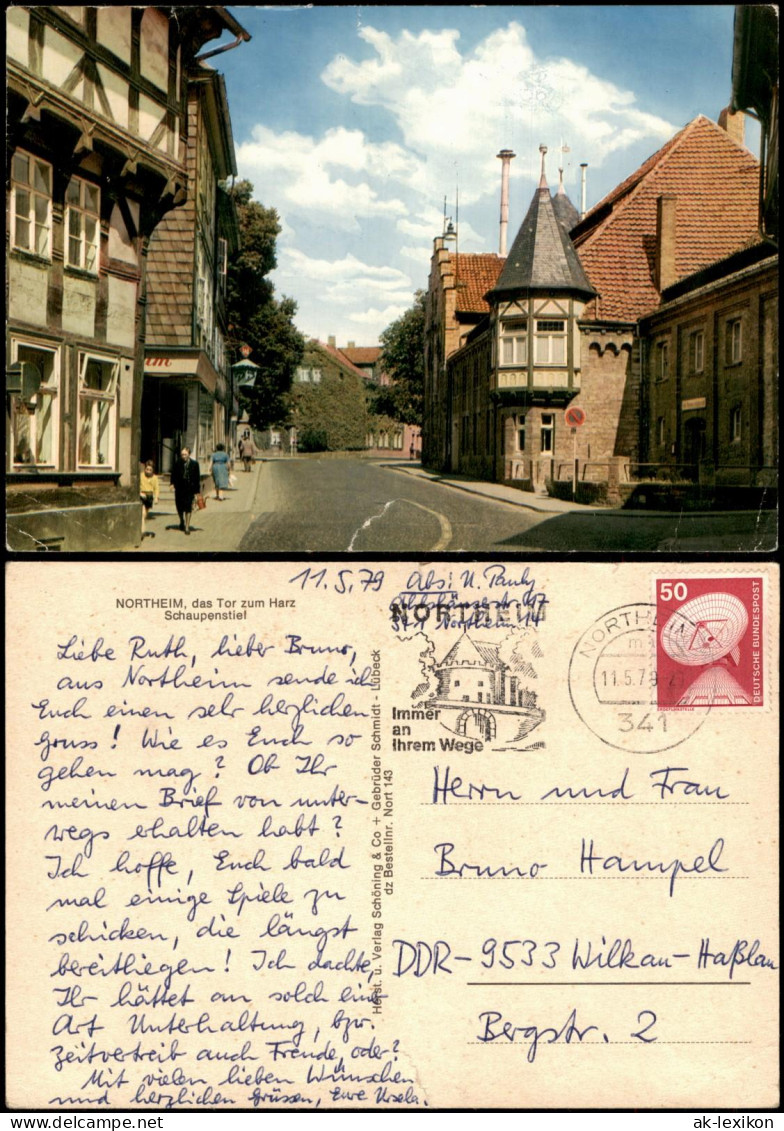 © oldthing.com
NORTHEIM, das Tor zum Harz
Schaupenstiel
11.5.79
Abs: U. Pauly
Northeim 14
NORTHEIM
Immer
an
Ihrem Wege
NORTHEIM
11.5.79
341
50
DEUTSCHE BUNDESPOST
ERDEFUNKSTELLE
Liebe Ruth, lieber Bruno,
aus Northeim sende ich
Euch einen sehr herzlichen
Gruss! Wie es Euch so
gehen mag? Ob Ihr
meinen Brief von unter-
wegs erhalten habt?
Ich hoffe, Euch bald
mal einige Spiele zu
schicken, die längst
bereitliegen! Ich dachte,
Ihr hättet an solch einer
Art Unterhaltung, bzw.
Zeitvertreib auch Freude, oder?
Mit vielen lieben Wünschen
und herzlichen Grüssen, Eure Ursela.
Herst. u. Verlag Schöning & Co + Gebrüder Schmidt - Lübeck
dz Bestellnr. Nort 143
Herrn und Frau
Bruno Hampel
DDR-9533 Wilkau-Haßlau
Bergstr. 2
oldthing.com
ak-lexikon